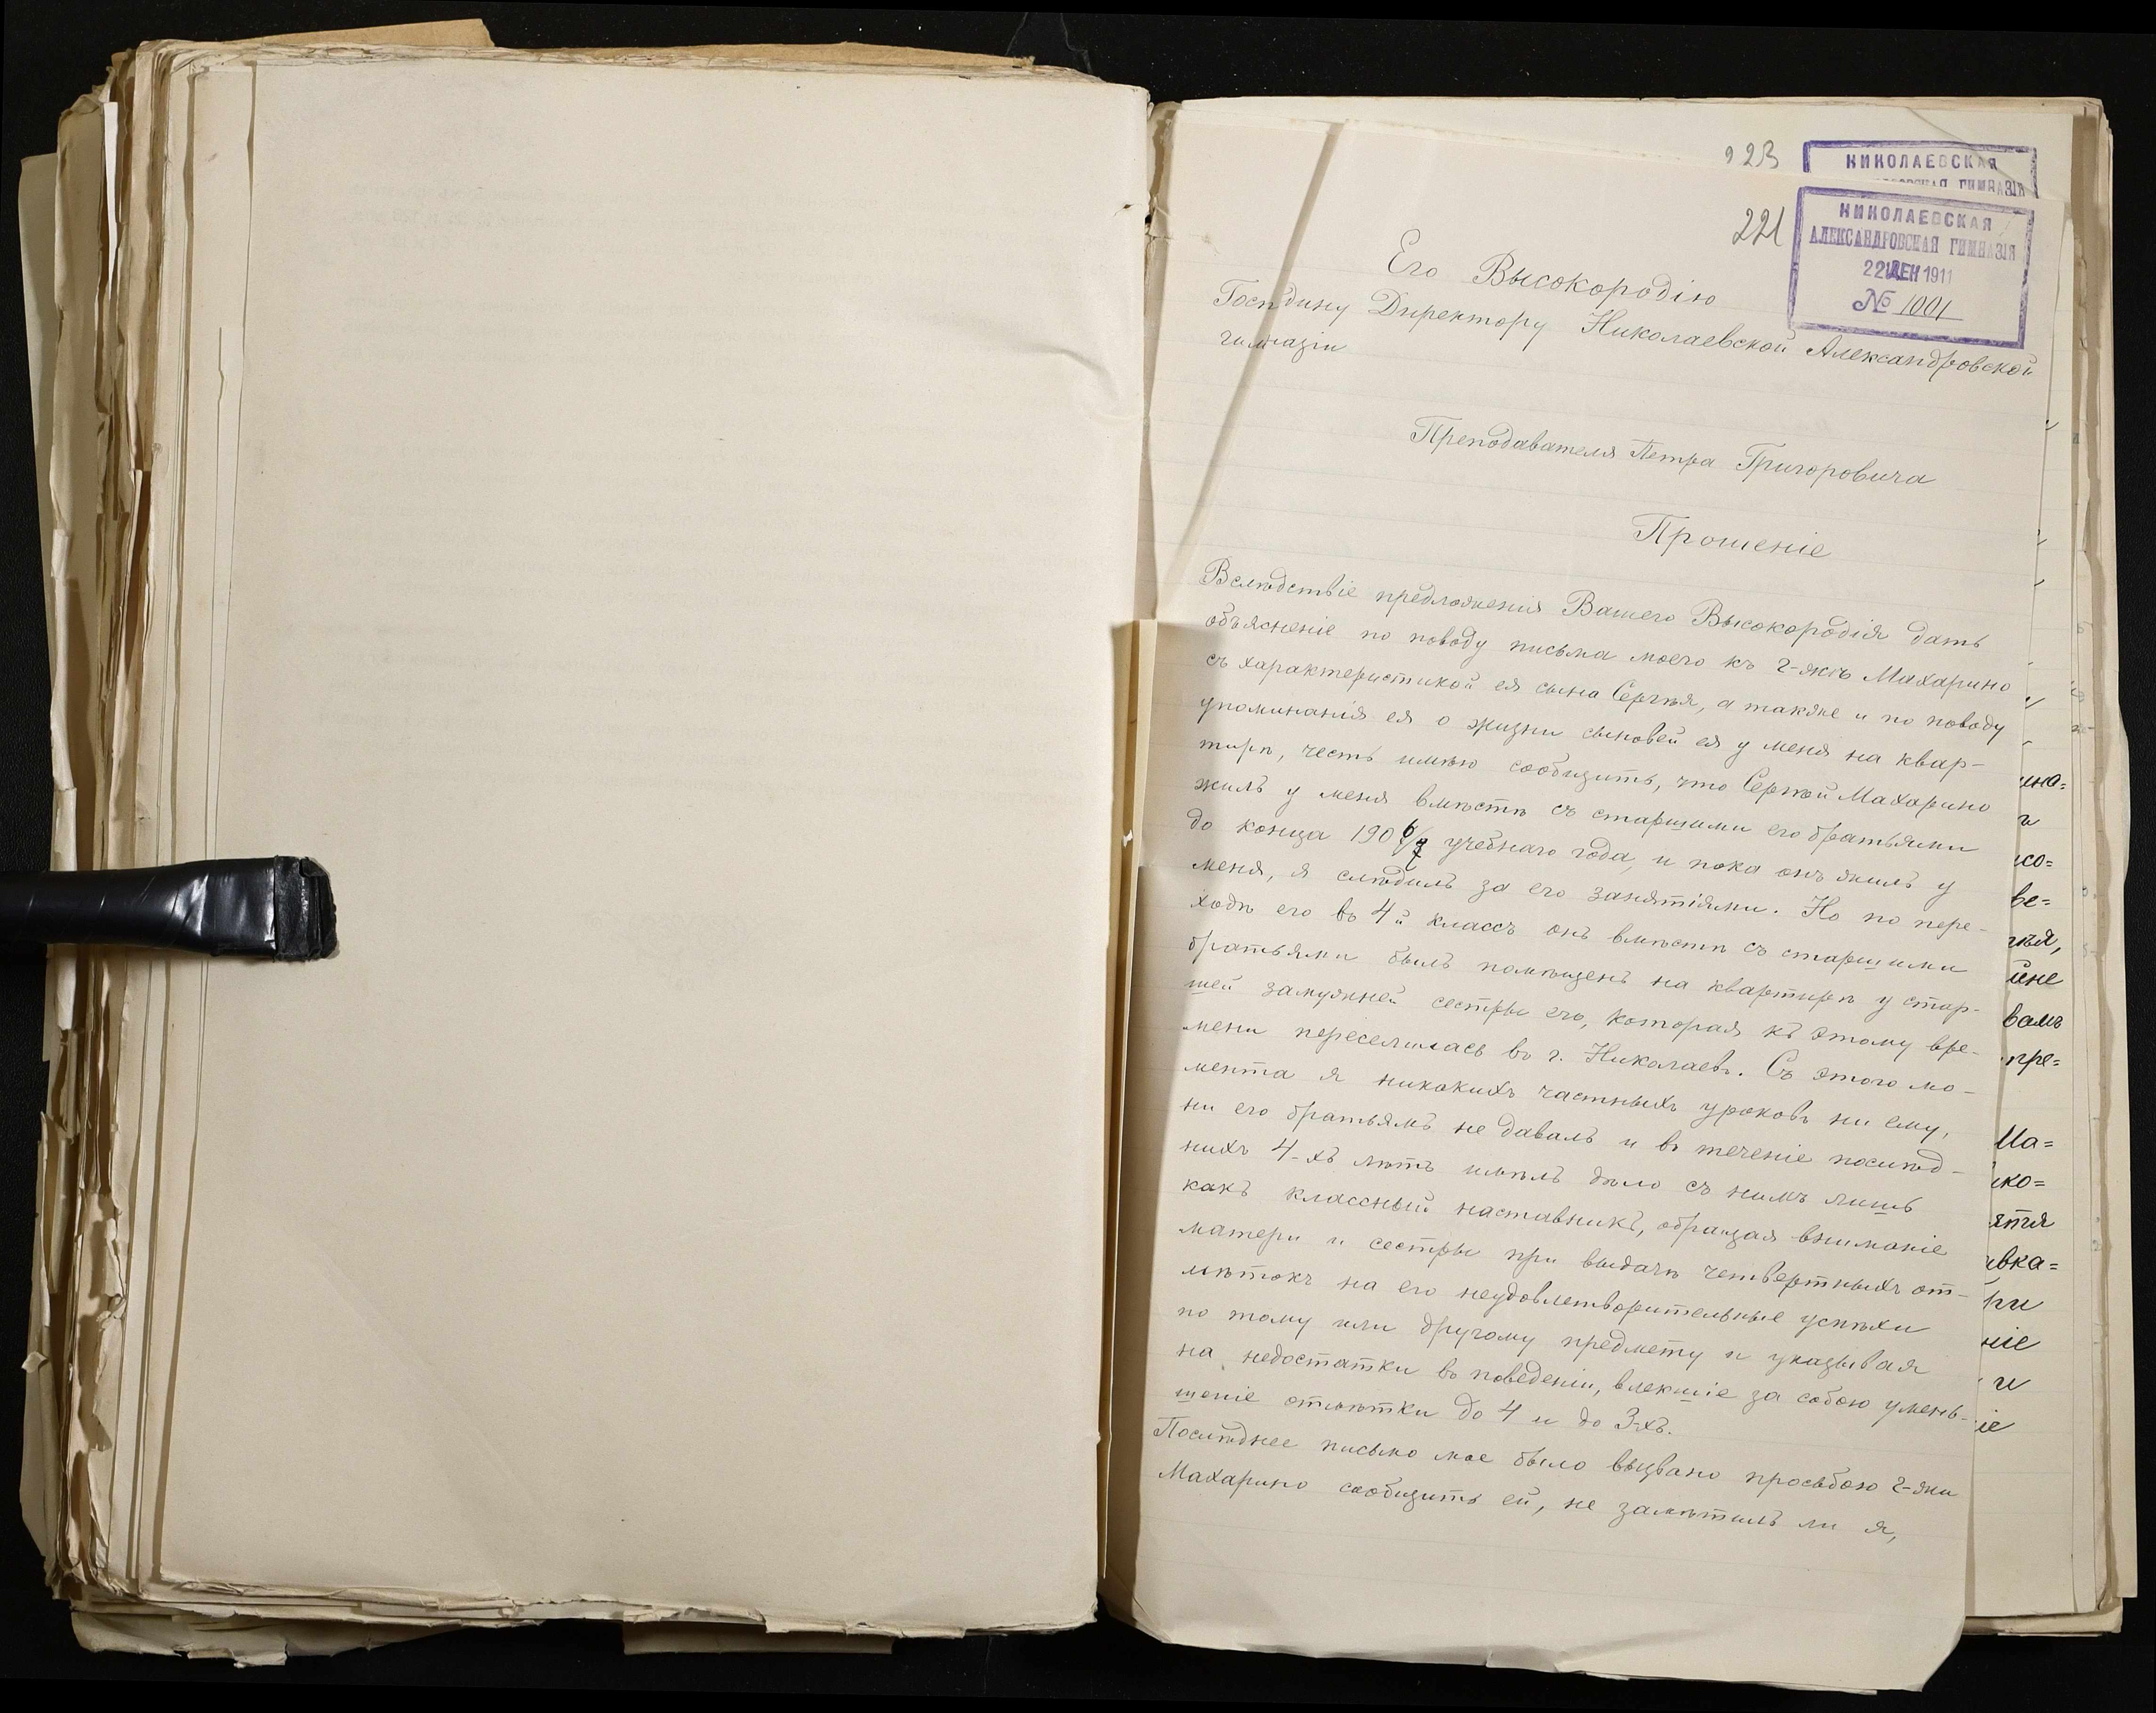 223
НИКОЛАЕВСКАЯ
221
НИКОЛАЕВСКАЯ
АЛЕКСАНДРОВСКАЯ ГИМНАЗІЯ
22 ДЕК 1911
№ 1001
Его Высокородію
Господину Директору Николаевской Александровской
гимназіи
Преподавателя Петра Григоровича
Прошеніе
Вслѣдствіе предложенія Вашего Высокородія дать
объясненіе по поводу письма моего къ г-жѣ Махарино
съ характеристикой ея сына Сергѣя, а также и по поводу
упоминанія ея о жизни сыновей ея у меня на квар-
тирѣ, честь имѣю сообщить, что Сергѣй Махарино
жилъ у меня вмѣстѣ съ старшими его братьями
до конца 1906/7 учебнаго года, и пока онъ жилъ у
меня, я слѣдилъ за его занятіями. Но по пере-
ходѣ его въ 4й классъ онъ вмѣстѣ съ старшими
братьями былъ помѣщенъ на квартирѣ у стар-
шей замужней сестры его, которая къ этому вре-
мени переселилась въ г. Николаевъ. Съ этого мо-
мента я никакихъ частныхъ уроковъ ни ему,
ни его братьямъ не давалъ и въ теченіе послѣд-
нихъ 4-хъ лѣтъ имѣлъ дѣло съ нимъ лишь
какъ классный наставникъ, обращая вниманіе
матери и сестры при выдачѣ четвертныхъ от-
мѣтокъ на его неудовлетворительные успѣхи
по тому или другому предмету и указывая
на недостатки въ поведеніи, влекшіе за собою умень-
шеніе отмѣтки до 4 и до 3-хъ.
Послѣднее письмо мое было вызвано просьбою г-жи
Махарино сообщить ей, не замѣтилъ ли я,